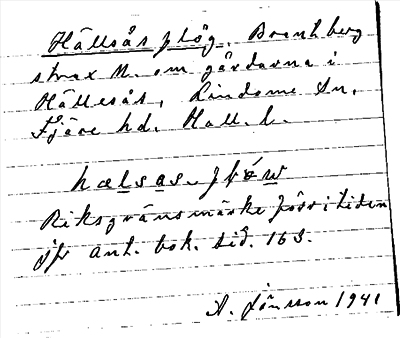 Hällsås plög. Brant berg
strax N. om gårdarna i
Hällesås, Lindome Sn,
Fjäre hd. Hall. l.
hælsas-pløw
Riksgränsmärke förr i tiden
jfr ant. bok. sid. 163.
A. Jönsson 1941